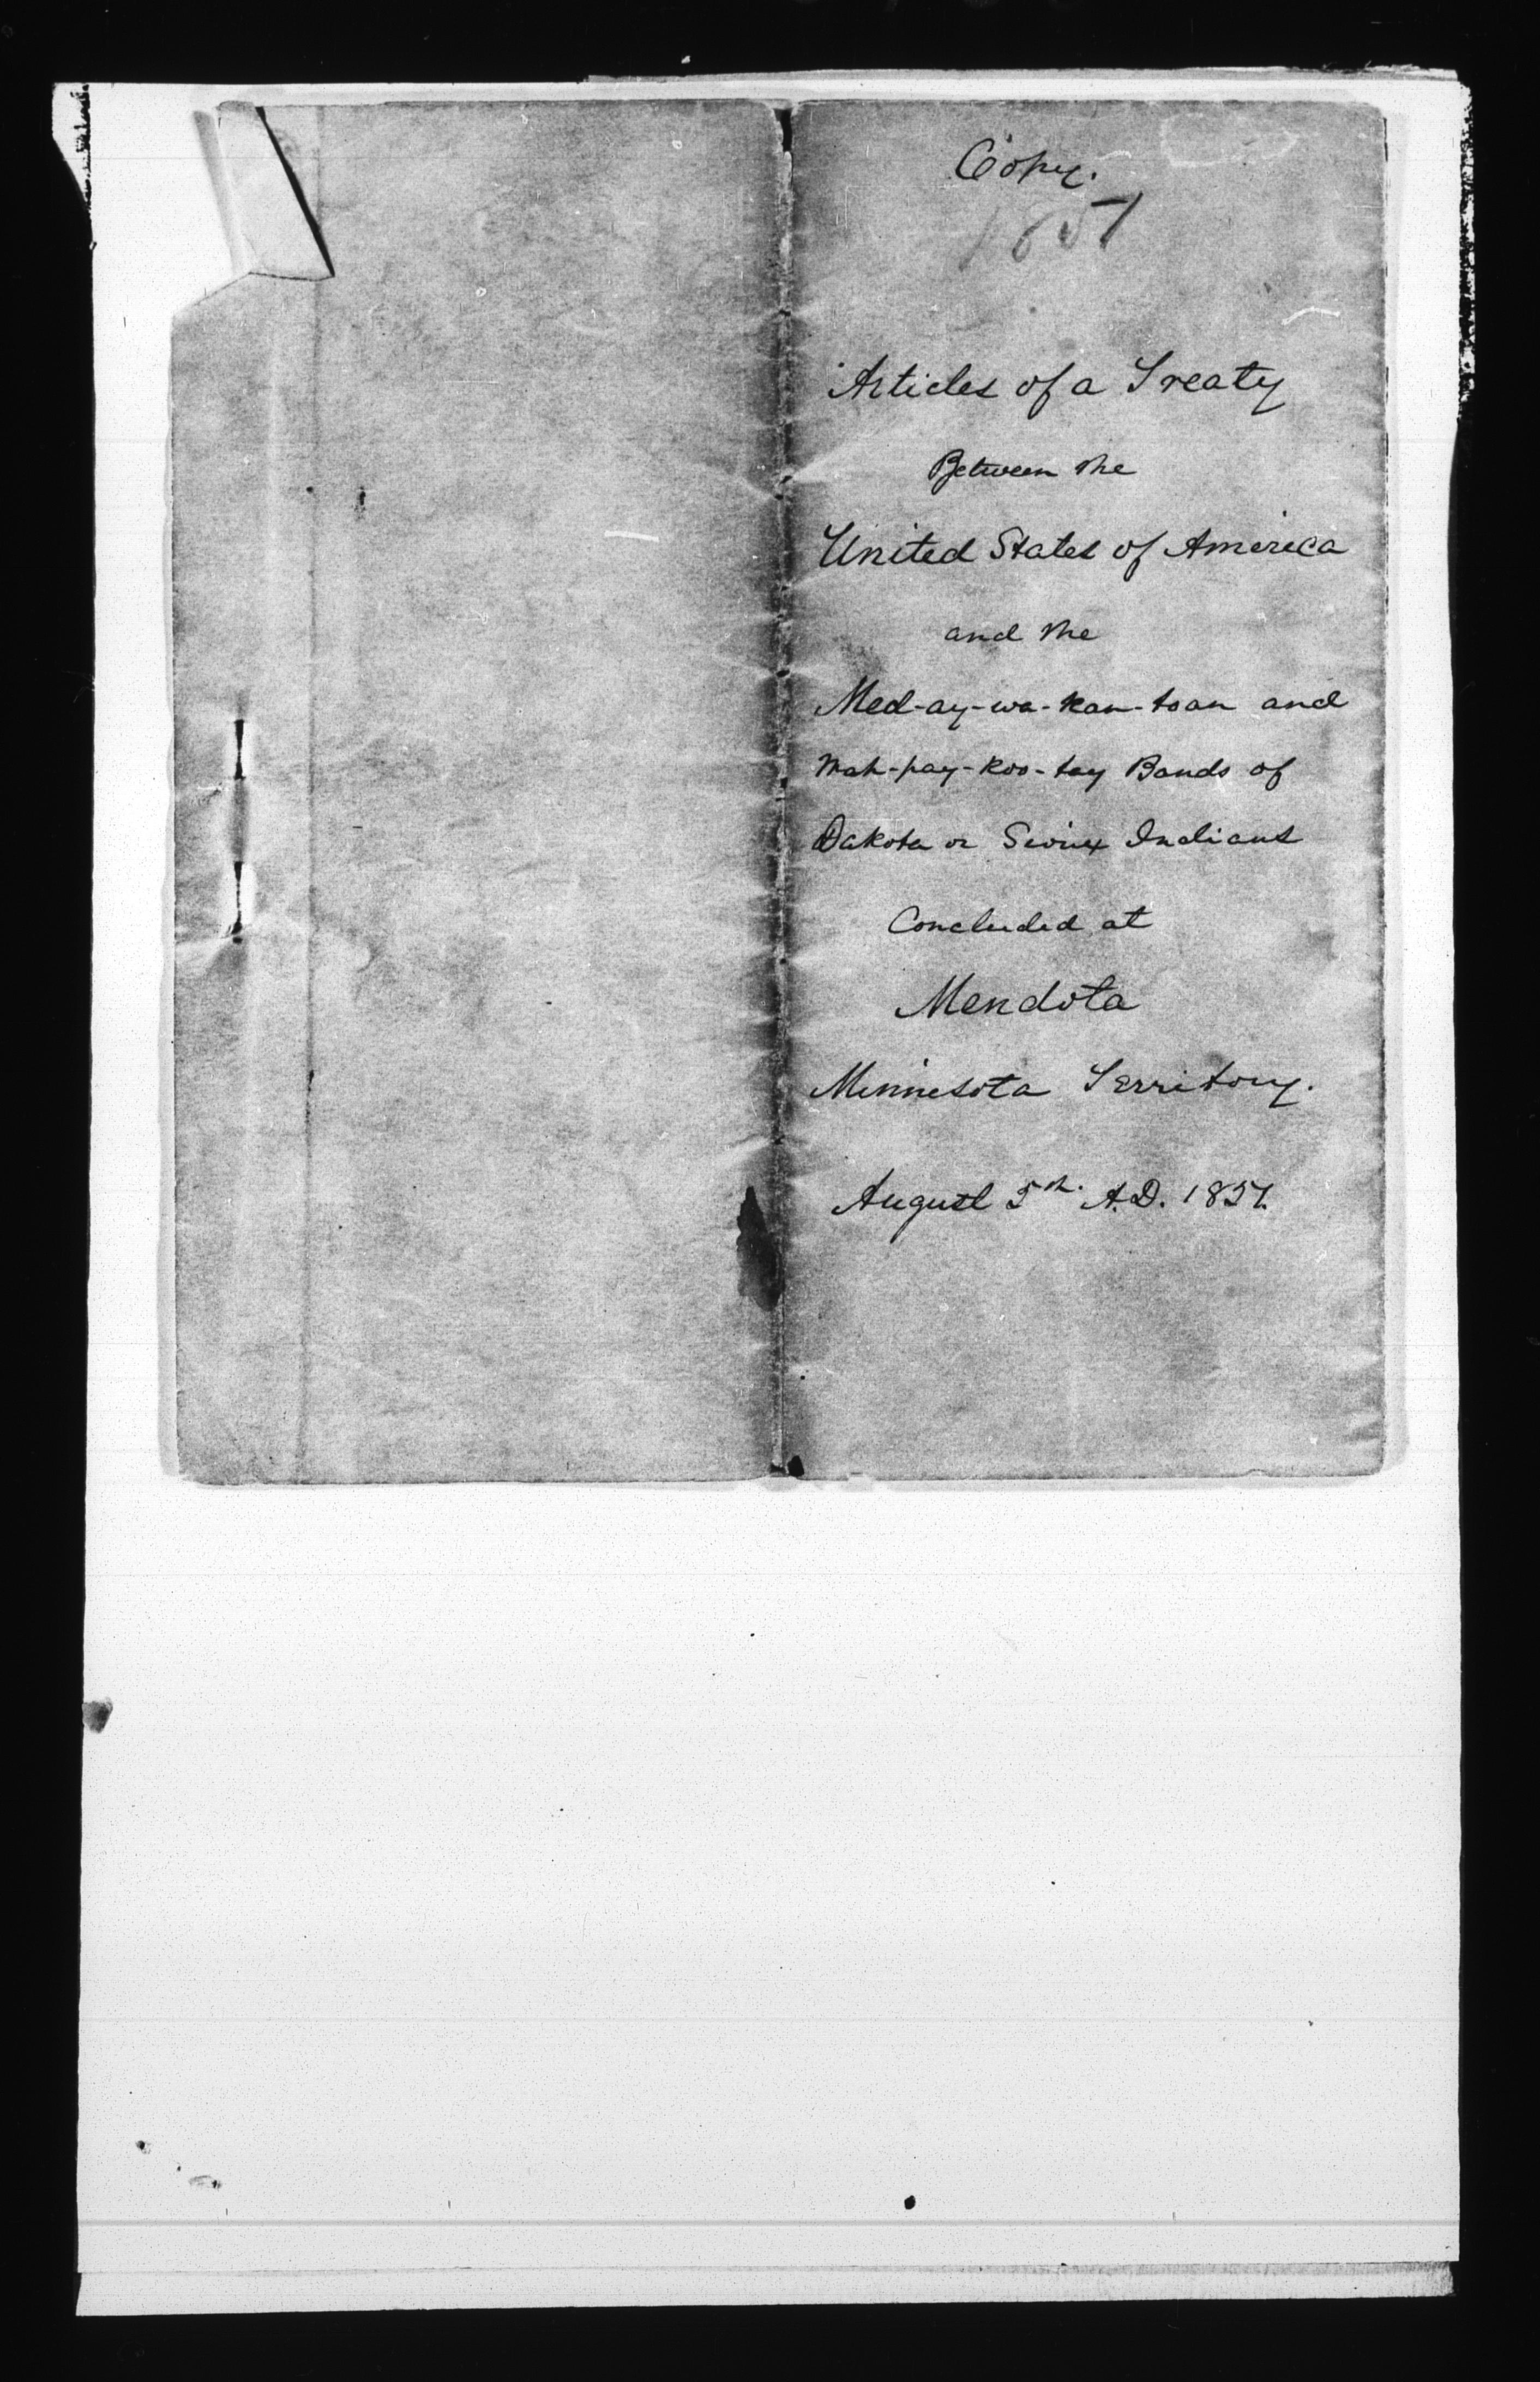 Copy.
1851
Articles of a Treaty
Between the
United States of America
and the
Med-ay-wa-kan-toan and
Wah-pay-koo-tay Bands of
Dakota or Sioux Indians
Concluded at
Mendota
Minnesota Territory.
August 5th. A.D. 1851.